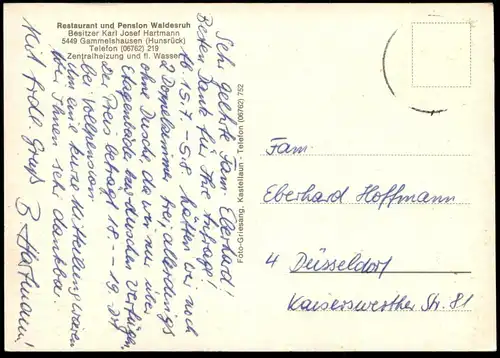 Restaurant und Pension Waldesruh
Besitzer Karl Josef Hartmann
5449 Gammelshausen (Hunsrück)
Telefon (06762) 219
Zentralheizung und fl. Wasser
Sehr geehrte Fam. Eberhard!
Besten Dank für Ihre Anfrage!
Ab 15.7. – 5.8 hätten wir noch
2 Doppelzimmer frei, allerdings
ohne Dusche, da wir nur über
Etagenbäder verfügen.
Der Preis beträgt 18.– – 19.– DM
bei Vollpension.
Um eine kurze Mitteilung wären
wir Ihnen sehr dankbar.
Mit frdl. Gruß
Hartmann!
Foto-Griesang, Kastellaun - Telefon (06762) 752
Fam.
Eberhard Hoffmann
4 Düsseldorf
Kaiserswerther Str. 81